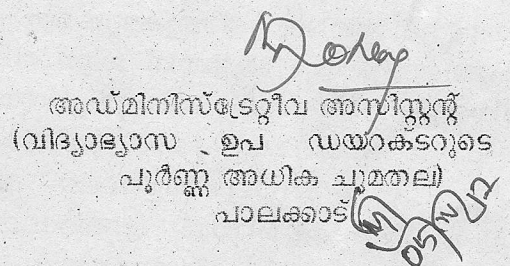 അഡ്മിനിസ്ട്രേറ്റീവ അസിസ്റ്റന്റ്
(വിദ്യാഭ്യാസ ഉപ ഡയറക്ടറുടെ
പൂർണ്ണ അധിക ചുമതല)
പാലക്കാട്